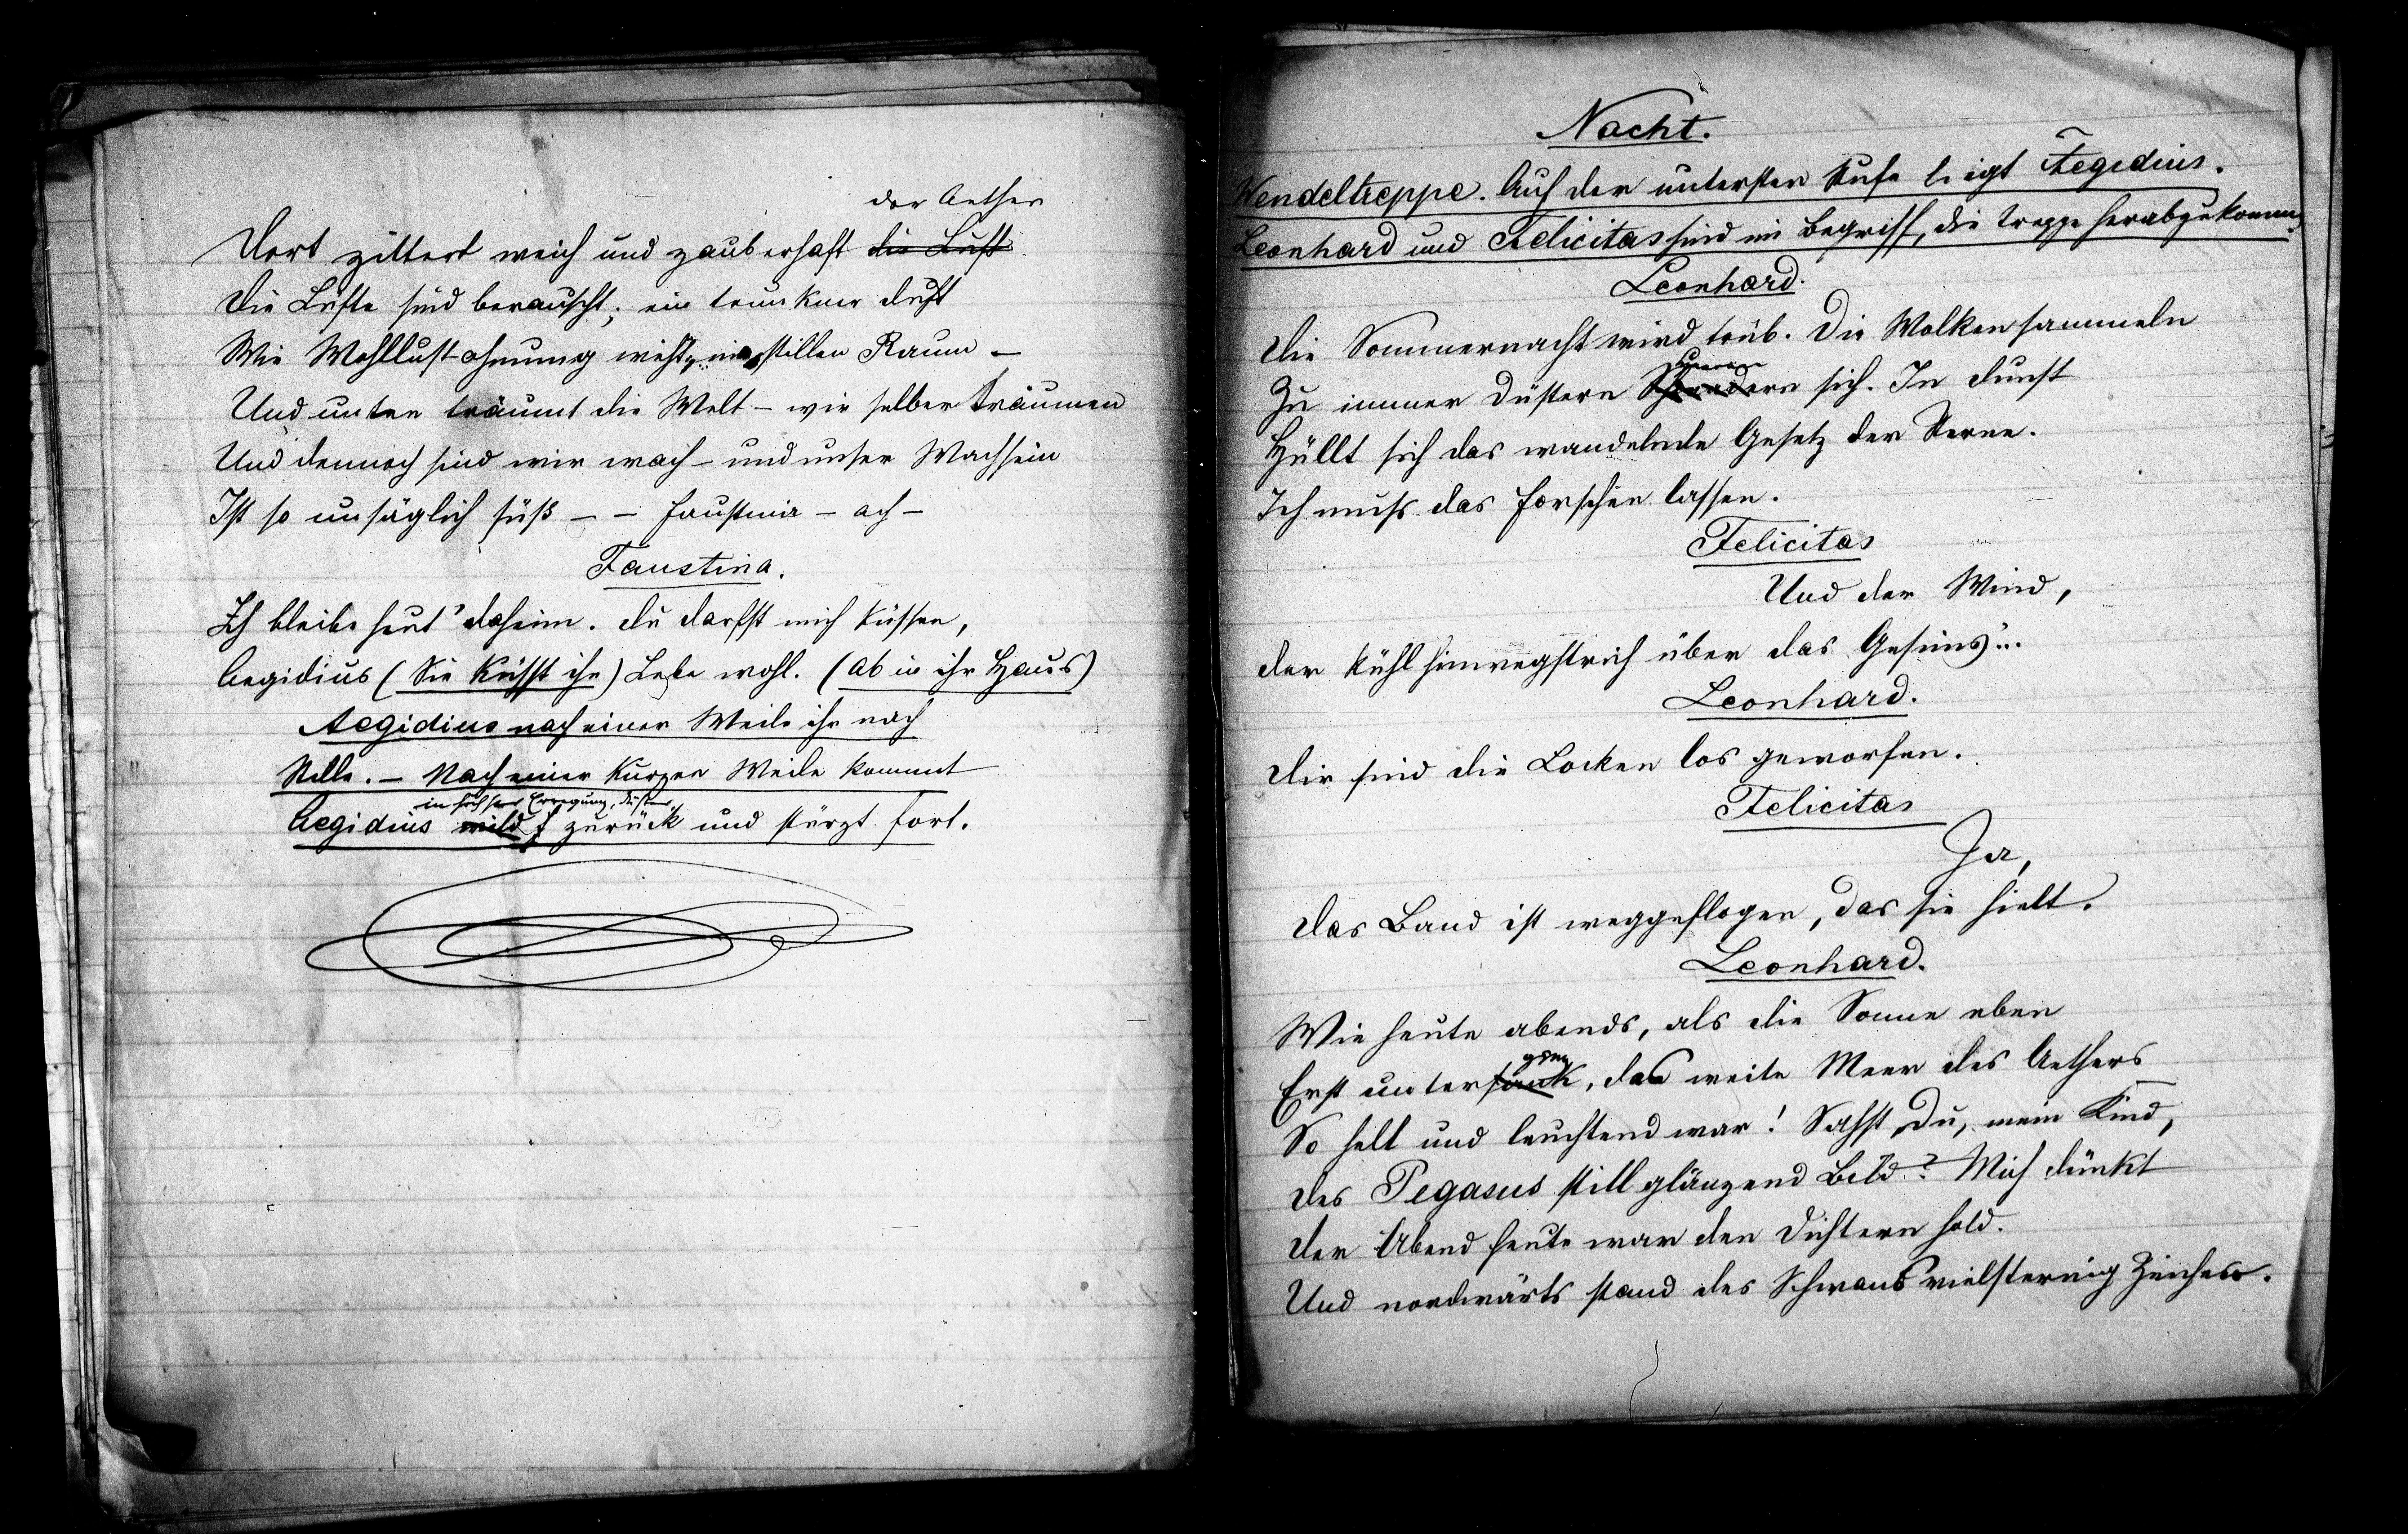 der Aether
Dort zittert weich und zauberhaft die Luft
Die Lüfte sind berauscht; ein trunkner Duft
Wie Wohllustahnung weht im stillen Raum –
Und unten träumt die Welt – wir selber träumen
Und dennoch sind wir wach – und unser Wachsein
Ist so unsäglich süß – – Faustina – ach –
Faustina.
Ich bleibe heut' daheim. Du darfst mich küssen,
Aegidius (Sie küsst ihn) Lebe wohl. (Ab in ihr Haus)
Aegidius nach einer Weile ihr nach
Stille. – Nach einer kurzen Weile kommt
in höchster Erregung, düster,
Aegidius wild zurück und stürzt fort.
Nacht.
Wendeltreppe. Auf der untersten Stufe liegt Aegidius.
Leonhard und Felicitas sind im Begriff, die Treppe herabzukommen.
Leonhard.
Die Sommernacht wird trüb. Die Wolken sammeln
Zu immer düstern sich. In Dunst
Hüllt sich das wandelnde Gesetz der Sterne.
Ich muß das Forschen lassen.
Felicitas
Und der Wind,
Der kühl hinwegstrich über das Gesims...
Leonhard.
Dir sind die Locken los geworfen.
Felicitas
Ja,
Das Band ist weggeflogen, das sie hielt.
Leonhard.
Wie heute abends, als die Sonne eben
ging
Erst untersank, das weite Meer des Aethers
So hell und leuchtend war! Sahst Du, mein Kind,
Des Pegasus still glänzend Bild? Mich dünkt
Der Abend heute war den Dichtern hold.
Und nordwärts stand des Schwans vielsternig Zeichen.